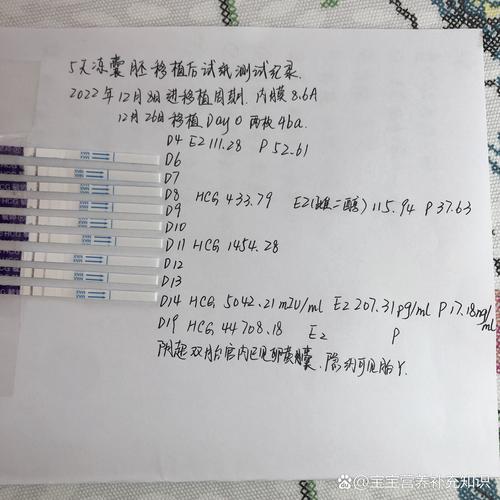 5天冻囊胚移植后试纸测试纪录.
2022年12月8日进移植周期.内膜8.6A
12月26日移植Day0两枚4ba.
D4 E2 111.28 P 52.61
D6
D7
D8 HCG 433.79 E2(雌二醇)115.94 P 37.63
D9
D10
D11 HCG 1454.28
D12
D13
D14 HCG 5042.21mIU/ml E2 207.31pg/ml P 17.18ng/ml
D19 HCG 44708.18 E2 P
阴超双胎宫内已见卵黄囊.隐约可见胎
宝宝营养补充知识